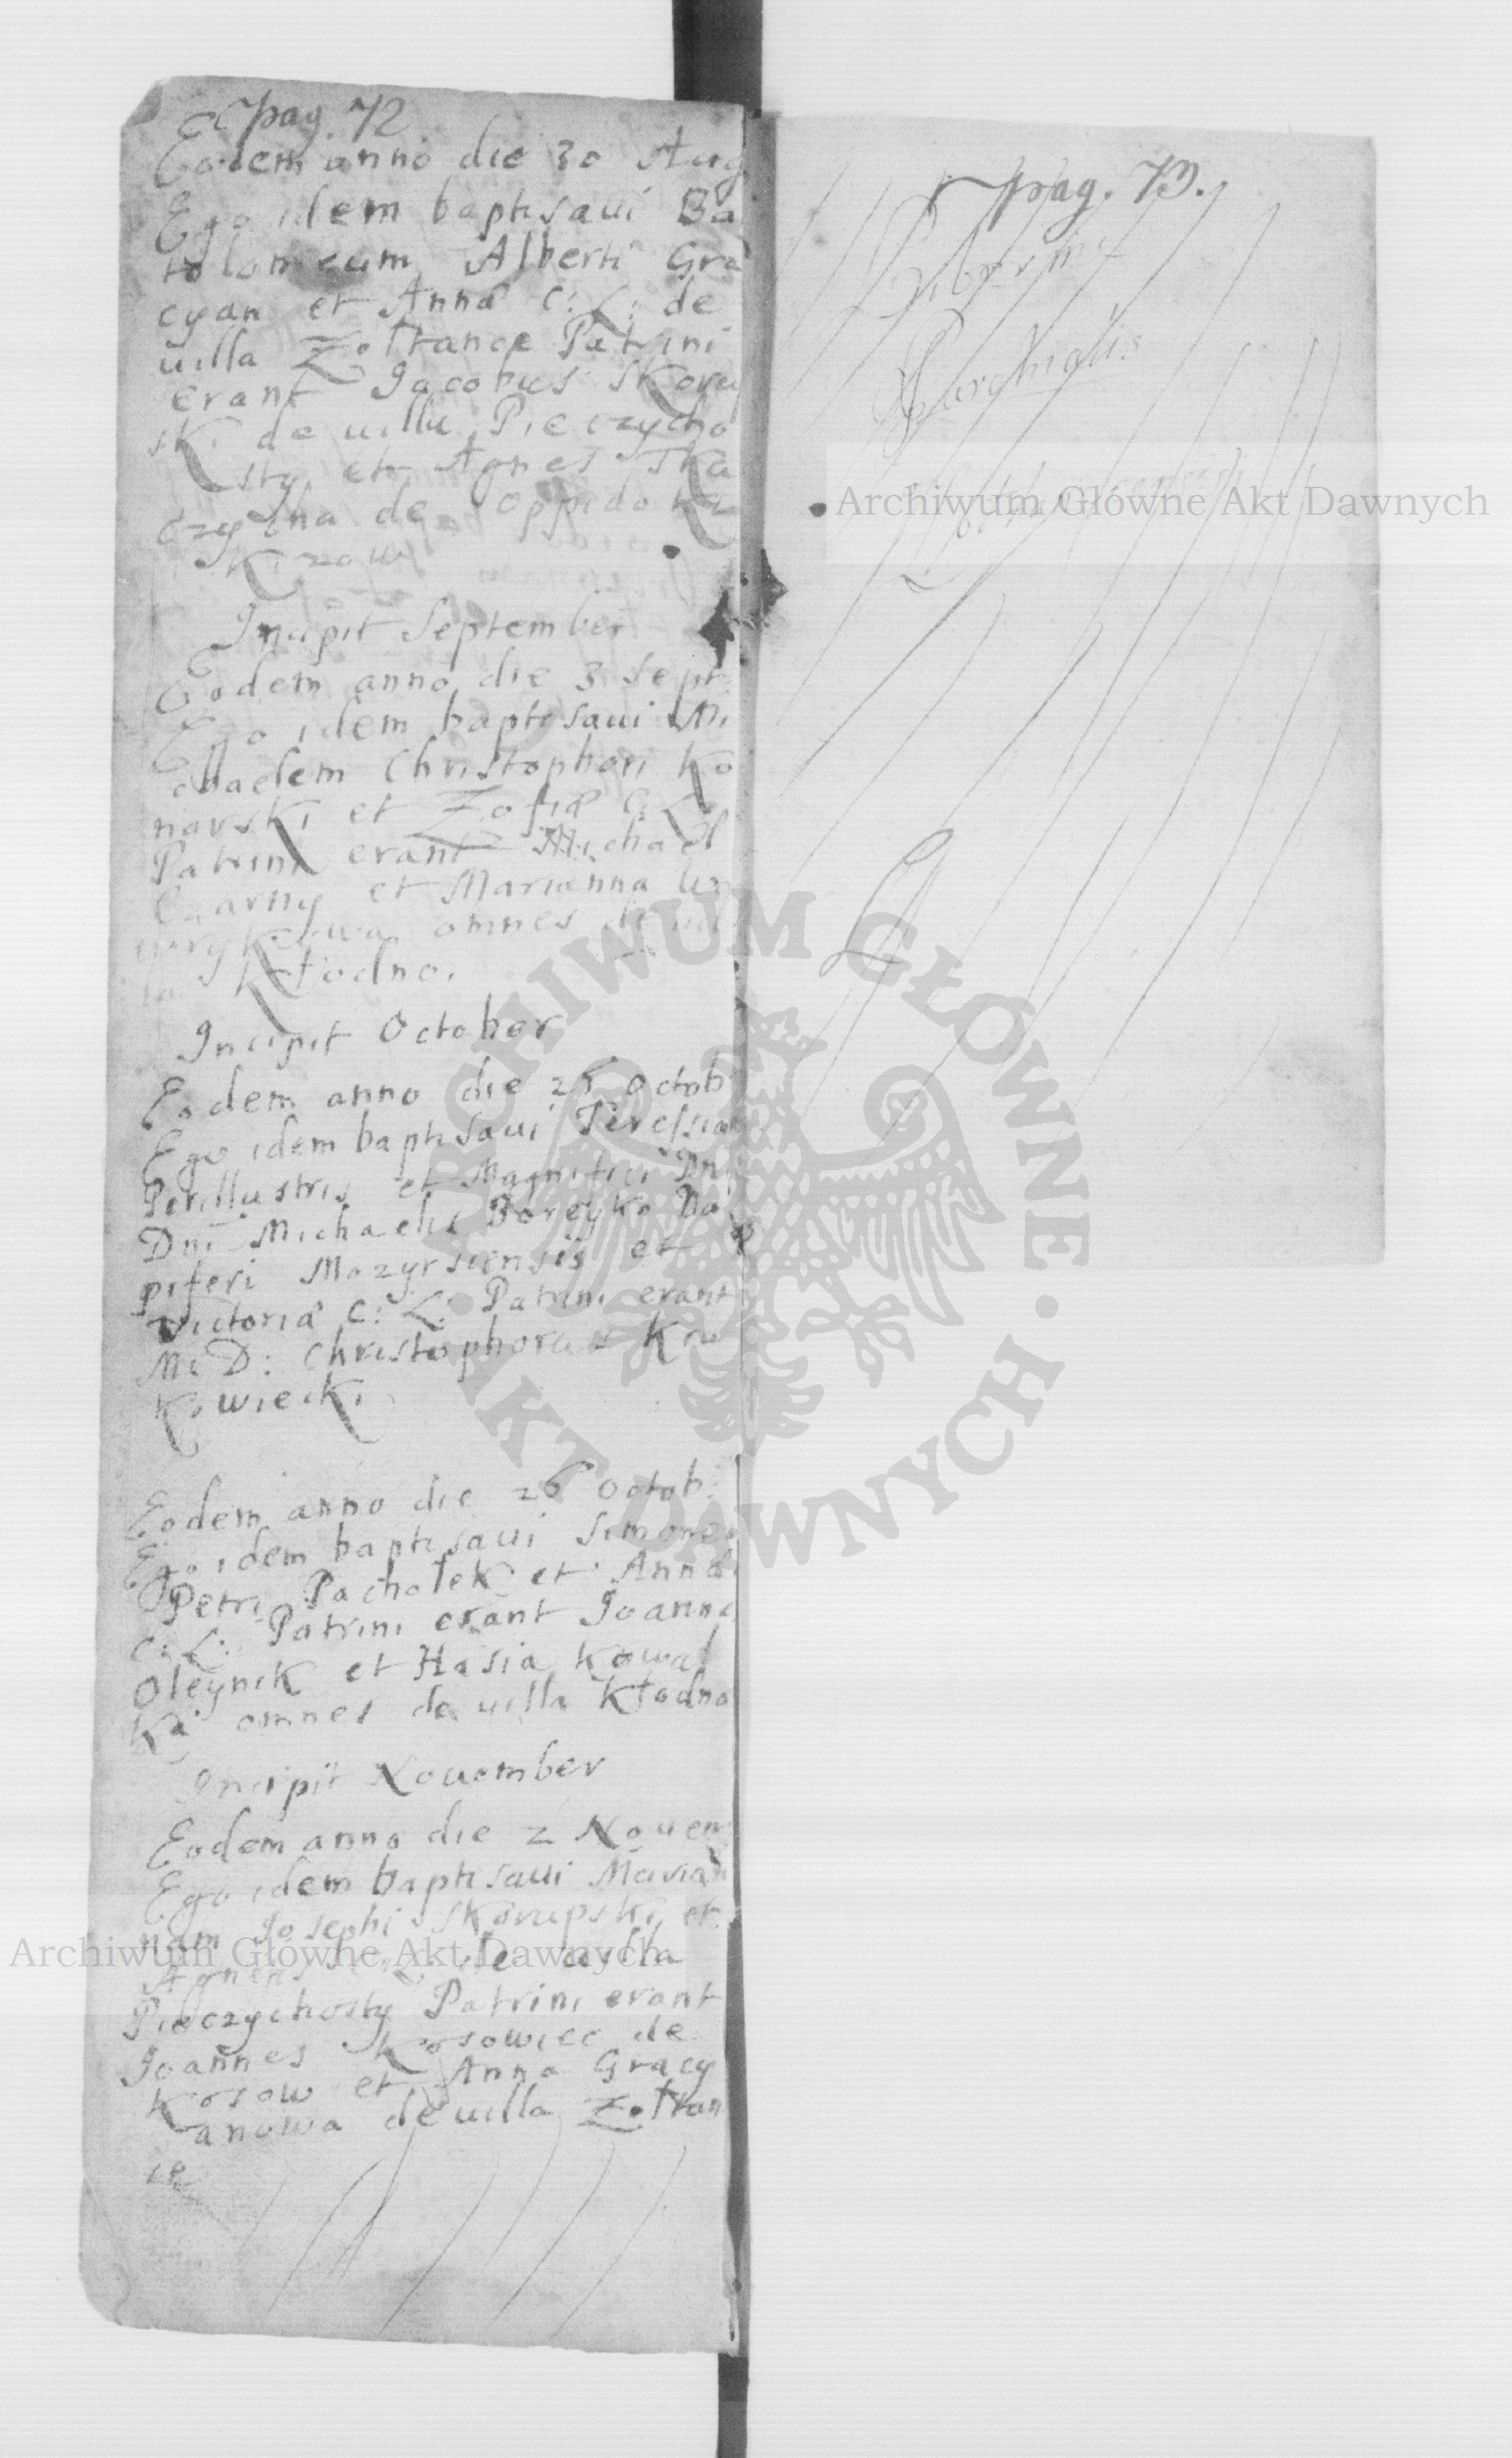 pag. 72
Eodem anno die 30 Aug
Ego idem baptisaui Ba
tolomeum Alberti Gra
cyan et Annæ C: L: de
uilla Zołtance Patrini
erant Jacobus Skoru
ski de uilla Pieczycho
sty et Agnes Tka
czycha de oppido Ku
Kizow
Incipit September
Eodem anno die 3 Sept:
Ego idem baptisaui Mi
chaelem Christophori Ko
narski et Zofiæ C: L:
Patrini erant Michael
Czarny et Marianna
omnes de uil
la Kłodno.
Incipit October
Eodem anno die 26 Octob
Ego idem baptisaui Teressiam
Perillustris et Magnifici Dni
Dni Michaelis Boreyko Da
piferi Mozyrsiensis et
Victoriæ C: L: Patrini erant
M: D: Christophorus Kru
Kowiecki
Eodem anno die 26 Octob:
Ego idem baptisaui Simonem
Petri Pachołek et Annæ
C: L: Patrini erant Joanne
Oleynik et Hasia Kowal
Ka omnes de uilla Kłodno
Incipit Nouember
Eodem anno die 2 Nouem
Ego idem baptisaui Marian
nam Josephi Skorupski et
de uilla
Pieczychosty Patrini erant
Joannes Kosowiec de
Kosow et Anna Gracy
anowa de uilla Zołtan
ce
pag. 73.
Archiwum Główne Akt Dawnych
ARCHIWUM GŁÓWNE AKT DAWNYCH
Archiwum Główne Akt Dawnych